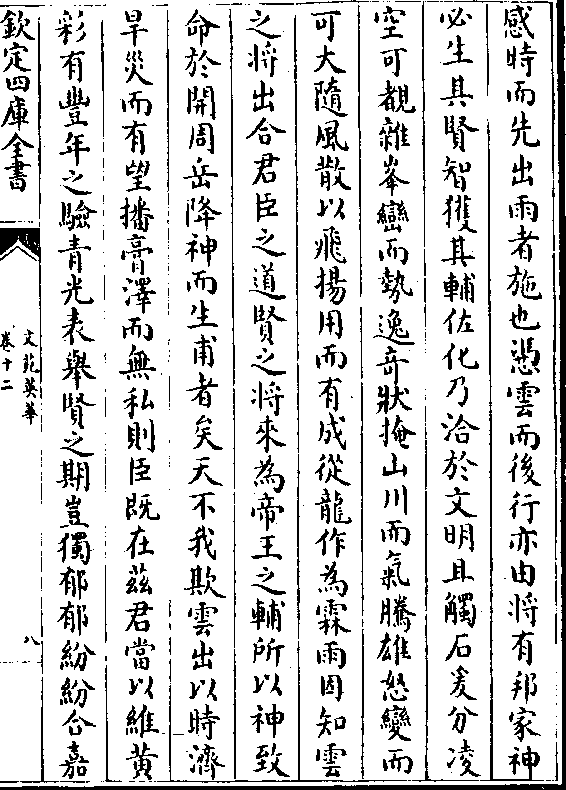 感時而先出雨者施也憑雲而後行亦由將有邦家神
必生其賢智獲其輔佐化乃洽於文明且觸石爰分凌
空可覩雜峯巒而勢逸奇狀掩山川而氣騰雄怒變而
可大隨風散以飛揚用而有成從龍作為霖雨因知雲
之將出合君臣之道賢之將來為帝王之輔所以神致
命於開周岳降神而生甫者矣天不我欺雲出以時濟
旱災而有望播膏澤而無私則臣既在兹君當以維黄
彩有豐年之驗青光表舉賢之期豈獨郁郁紛紛合嘉
欽定四庫全書
文苑英華
卷十二
八